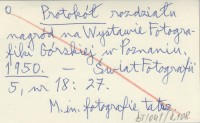 Protokół rozdziału
nagród na Wystawie Fotogra-
fiki Górskiej w Poznaniu,
1950. — Świat Fotografii
5, nr 18: 27.
M.in. fotografie tatrz.